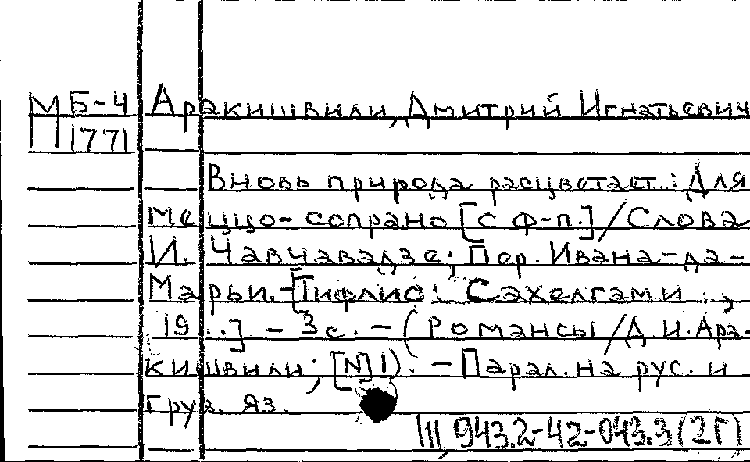 М Б-4 Аракишвили, Дмитрий Игнатьевич
П 1771
Вновь природа расцветает.: Для
меццо-сопрано [с ф-п.] / Слова
И. Чавчавадзе; Пер. Ивана-да-
Марьи.-[Тифлис: Сахелгами.,
19..] - 3 с. - (Романсы / Д. И. Ара-
кишвили; [N]1). - Парал. на рус. и
груз. яз.
III 943.2-42-043.3(2Г)